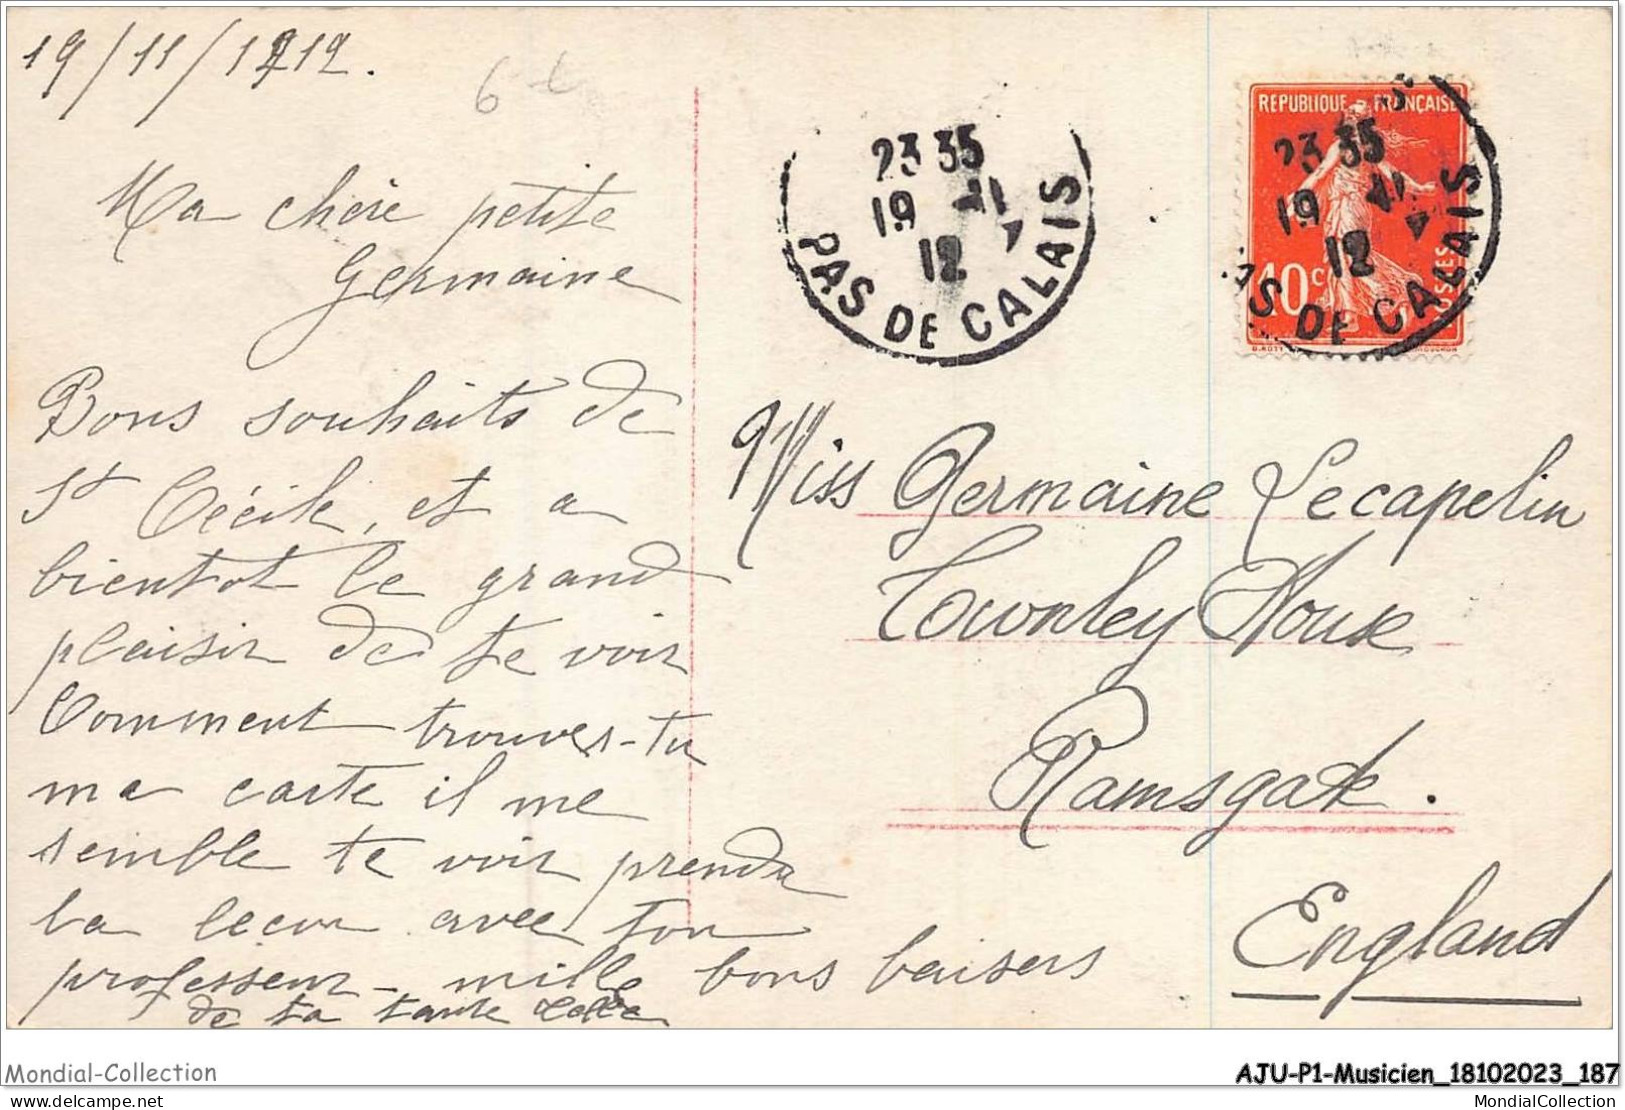 19/11/1912.
6
Ma chère petite
Germaine
Bons souhaits de
St Cécile, et a
bientot le grand
plaisir de te voir
Comment trouves-tu
ma carte il me
semble te voir prendre
la leçon avec ton
professeur - mille bons baisers
de ta tante
23 35
19 11
12
PAS DE CALAIS
REPUBLIQUE FRANÇAISE
23 35
19
12
10 c
AS DE CALAIS
Miss Germaine Lecapelin
Townley House
Ramsgate.
England
Mondial-Collection
AJU-P1-Musicien_18102023_187
delcampe.net
MondialCollection